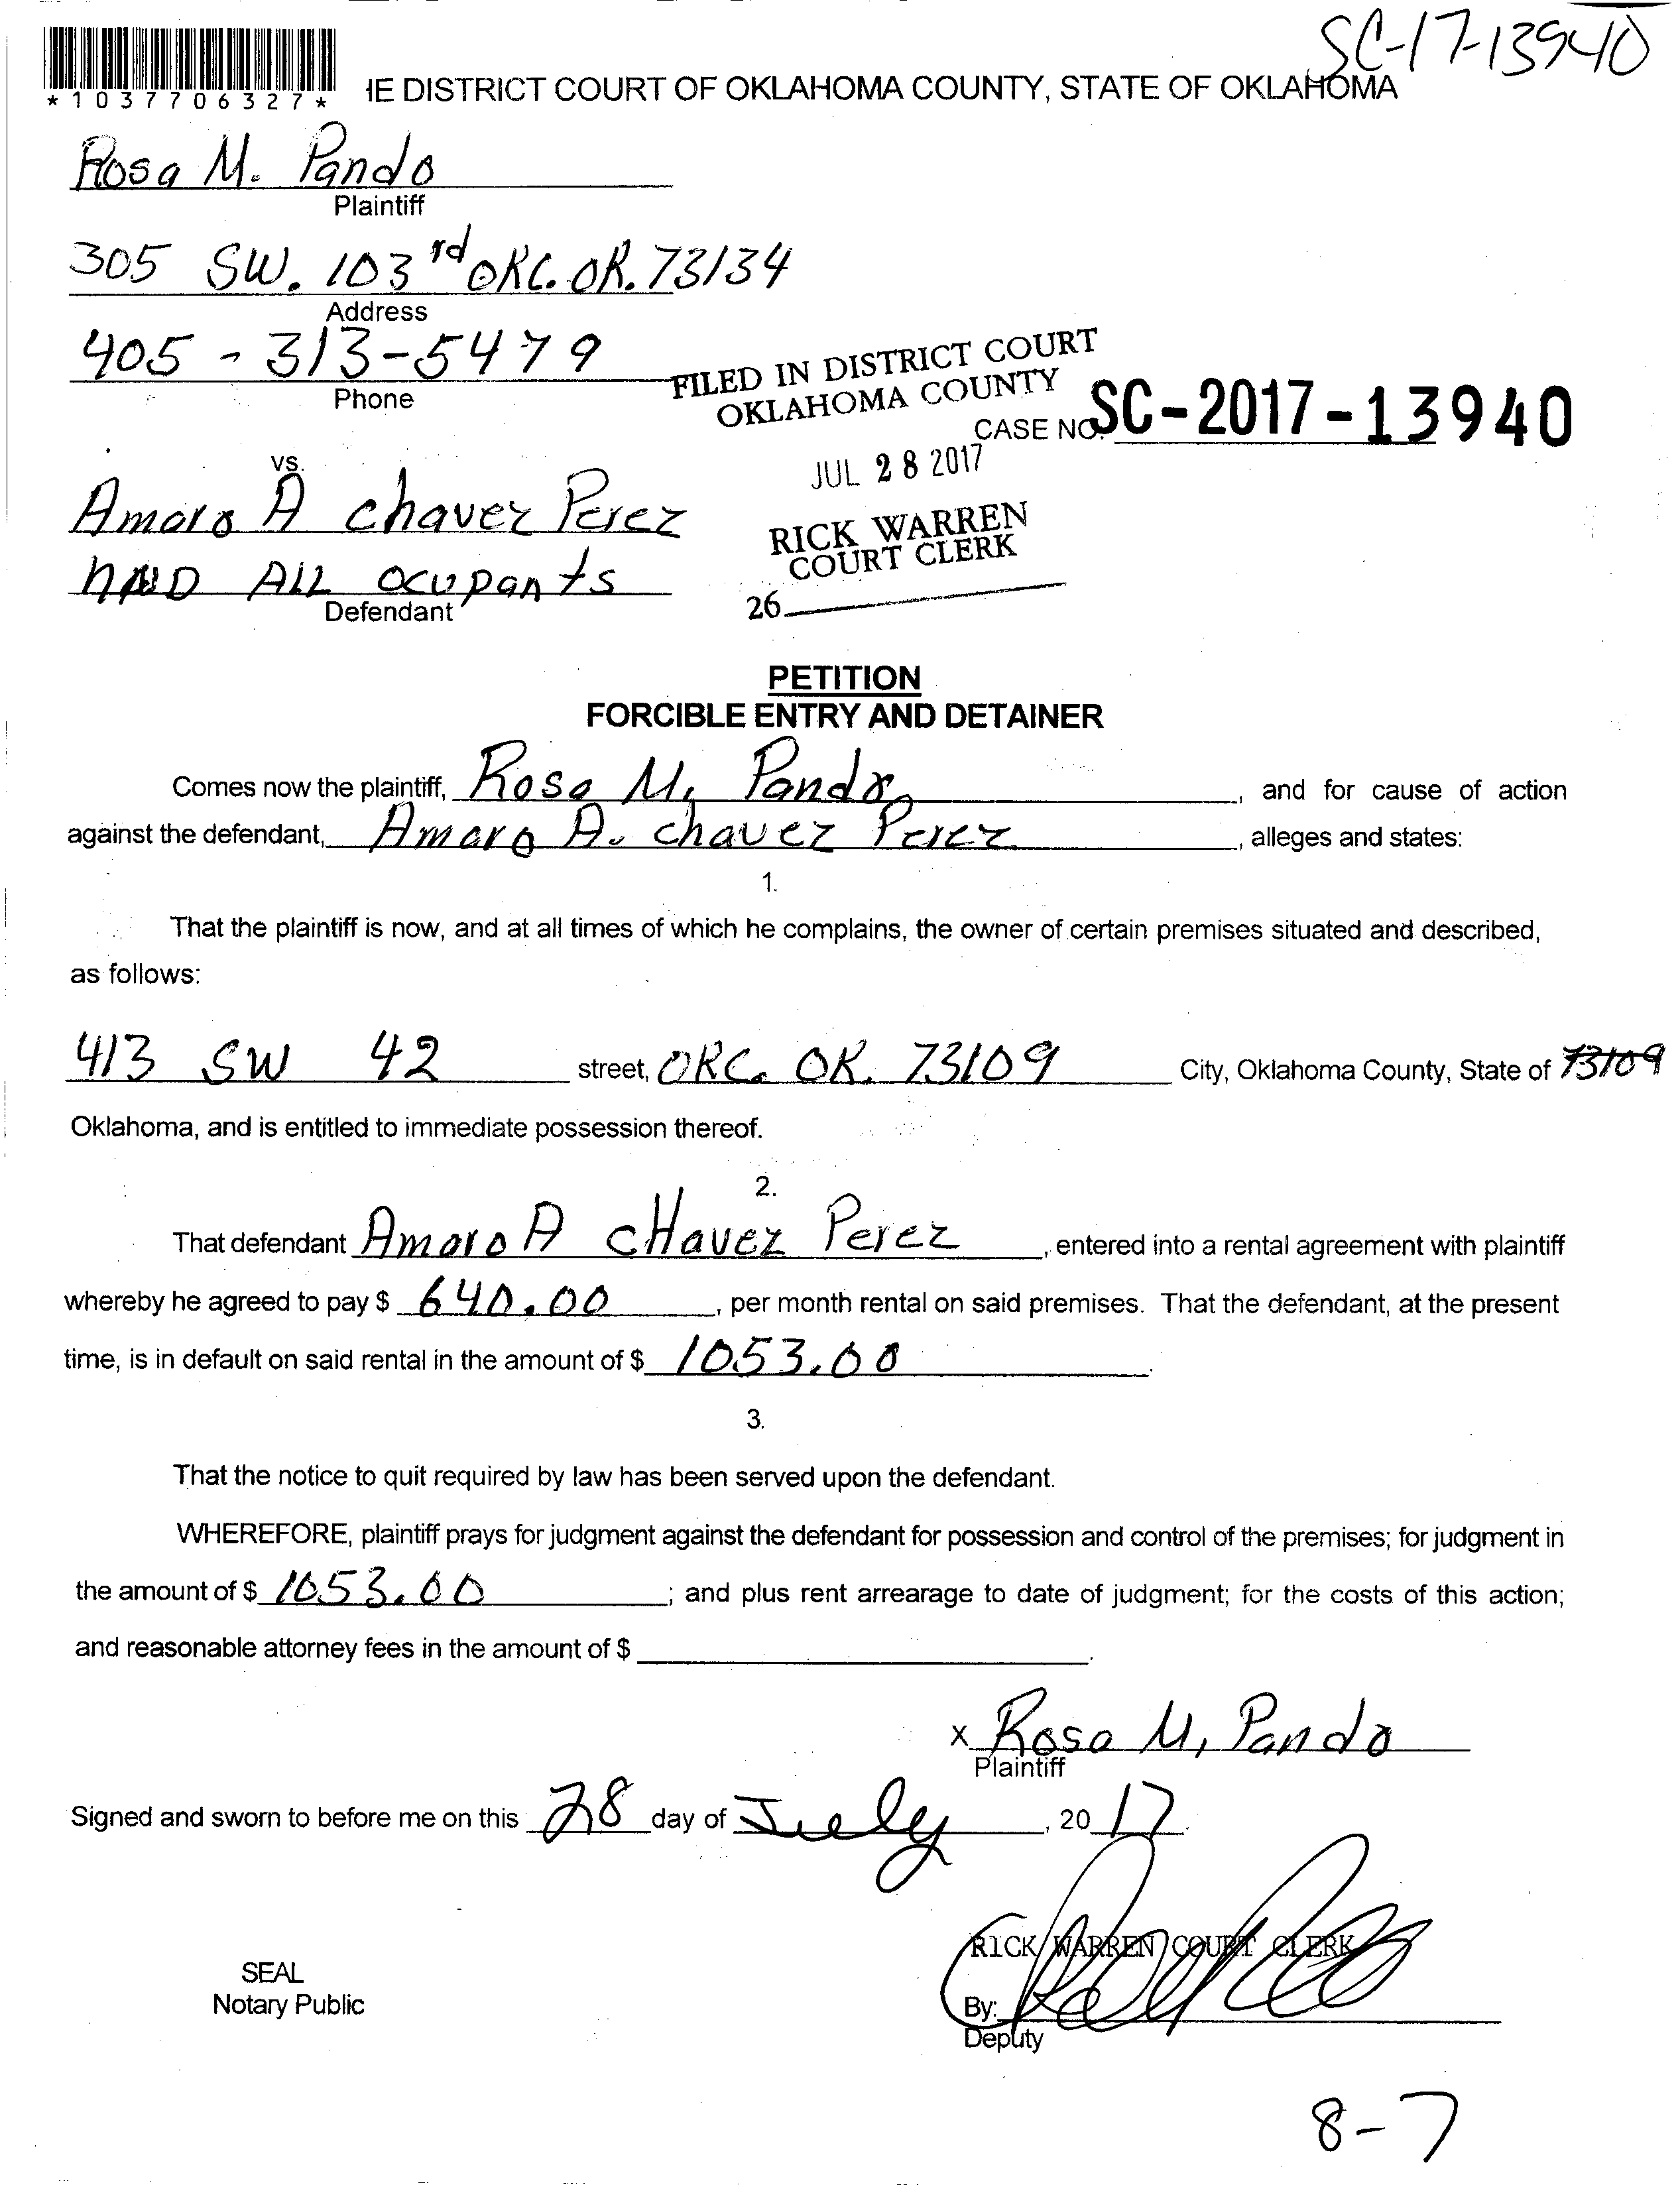 SC-17-13940
*1037706327*
HE DISTRICT COURT OF OKLAHOMA COUNTY, STATE OF OKLAHOMA
Rosa M. Pando
Plaintiff
305 SW. 103rd OKC. OK. 73134
Address
405-313-5479
Phone
FILED IN DISTRICT COURT
OKLAHOMA COUNTY
CASE NO. SC-2017-13940
JUL 28 2017
vs.
RICK WARREN
COURT CLERK
26
Amaro A chavez Perez
AND ALL ocupants
Defendant
PETITION
FORCIBLE ENTRY AND DETAINER
Comes now the plaintiff, Rosa M. Pando, and for cause of action
against the defendant, Amaro A. chavez Perez, alleges and states:
1.
That the plaintiff is now, and at all times of which he complains, the owner of certain premises situated and described,
as follows:
413 SW 42 street, OKC. OK. 73109 City, Oklahoma County, State of 73109
Oklahoma, and is entitled to immediate possession thereof.
2.
That defendant Amaro A cHavez Perez, entered into a rental agreement with plaintiff
whereby he agreed to pay $ 640.00, per month rental on said premises. That the defendant, at the present
time, is in default on said rental in the amount of $ 1053.00.
3.
That the notice to quit required by law has been served upon the defendant.
WHEREFORE, plaintiff prays for judgment against the defendant for possession and control of the premises; for judgment in
the amount of $ 1053.00; and plus rent arrearage to date of judgment; for the costs of this action;
and reasonable attorney fees in the amount of $.
x Rosa M, Pando
Plaintiff
Signed and sworn to before me on this 28 day of July, 2017.
RICK WARREN COURT CLERK
SEAL
Notary Public
By:
Deputy
8-7